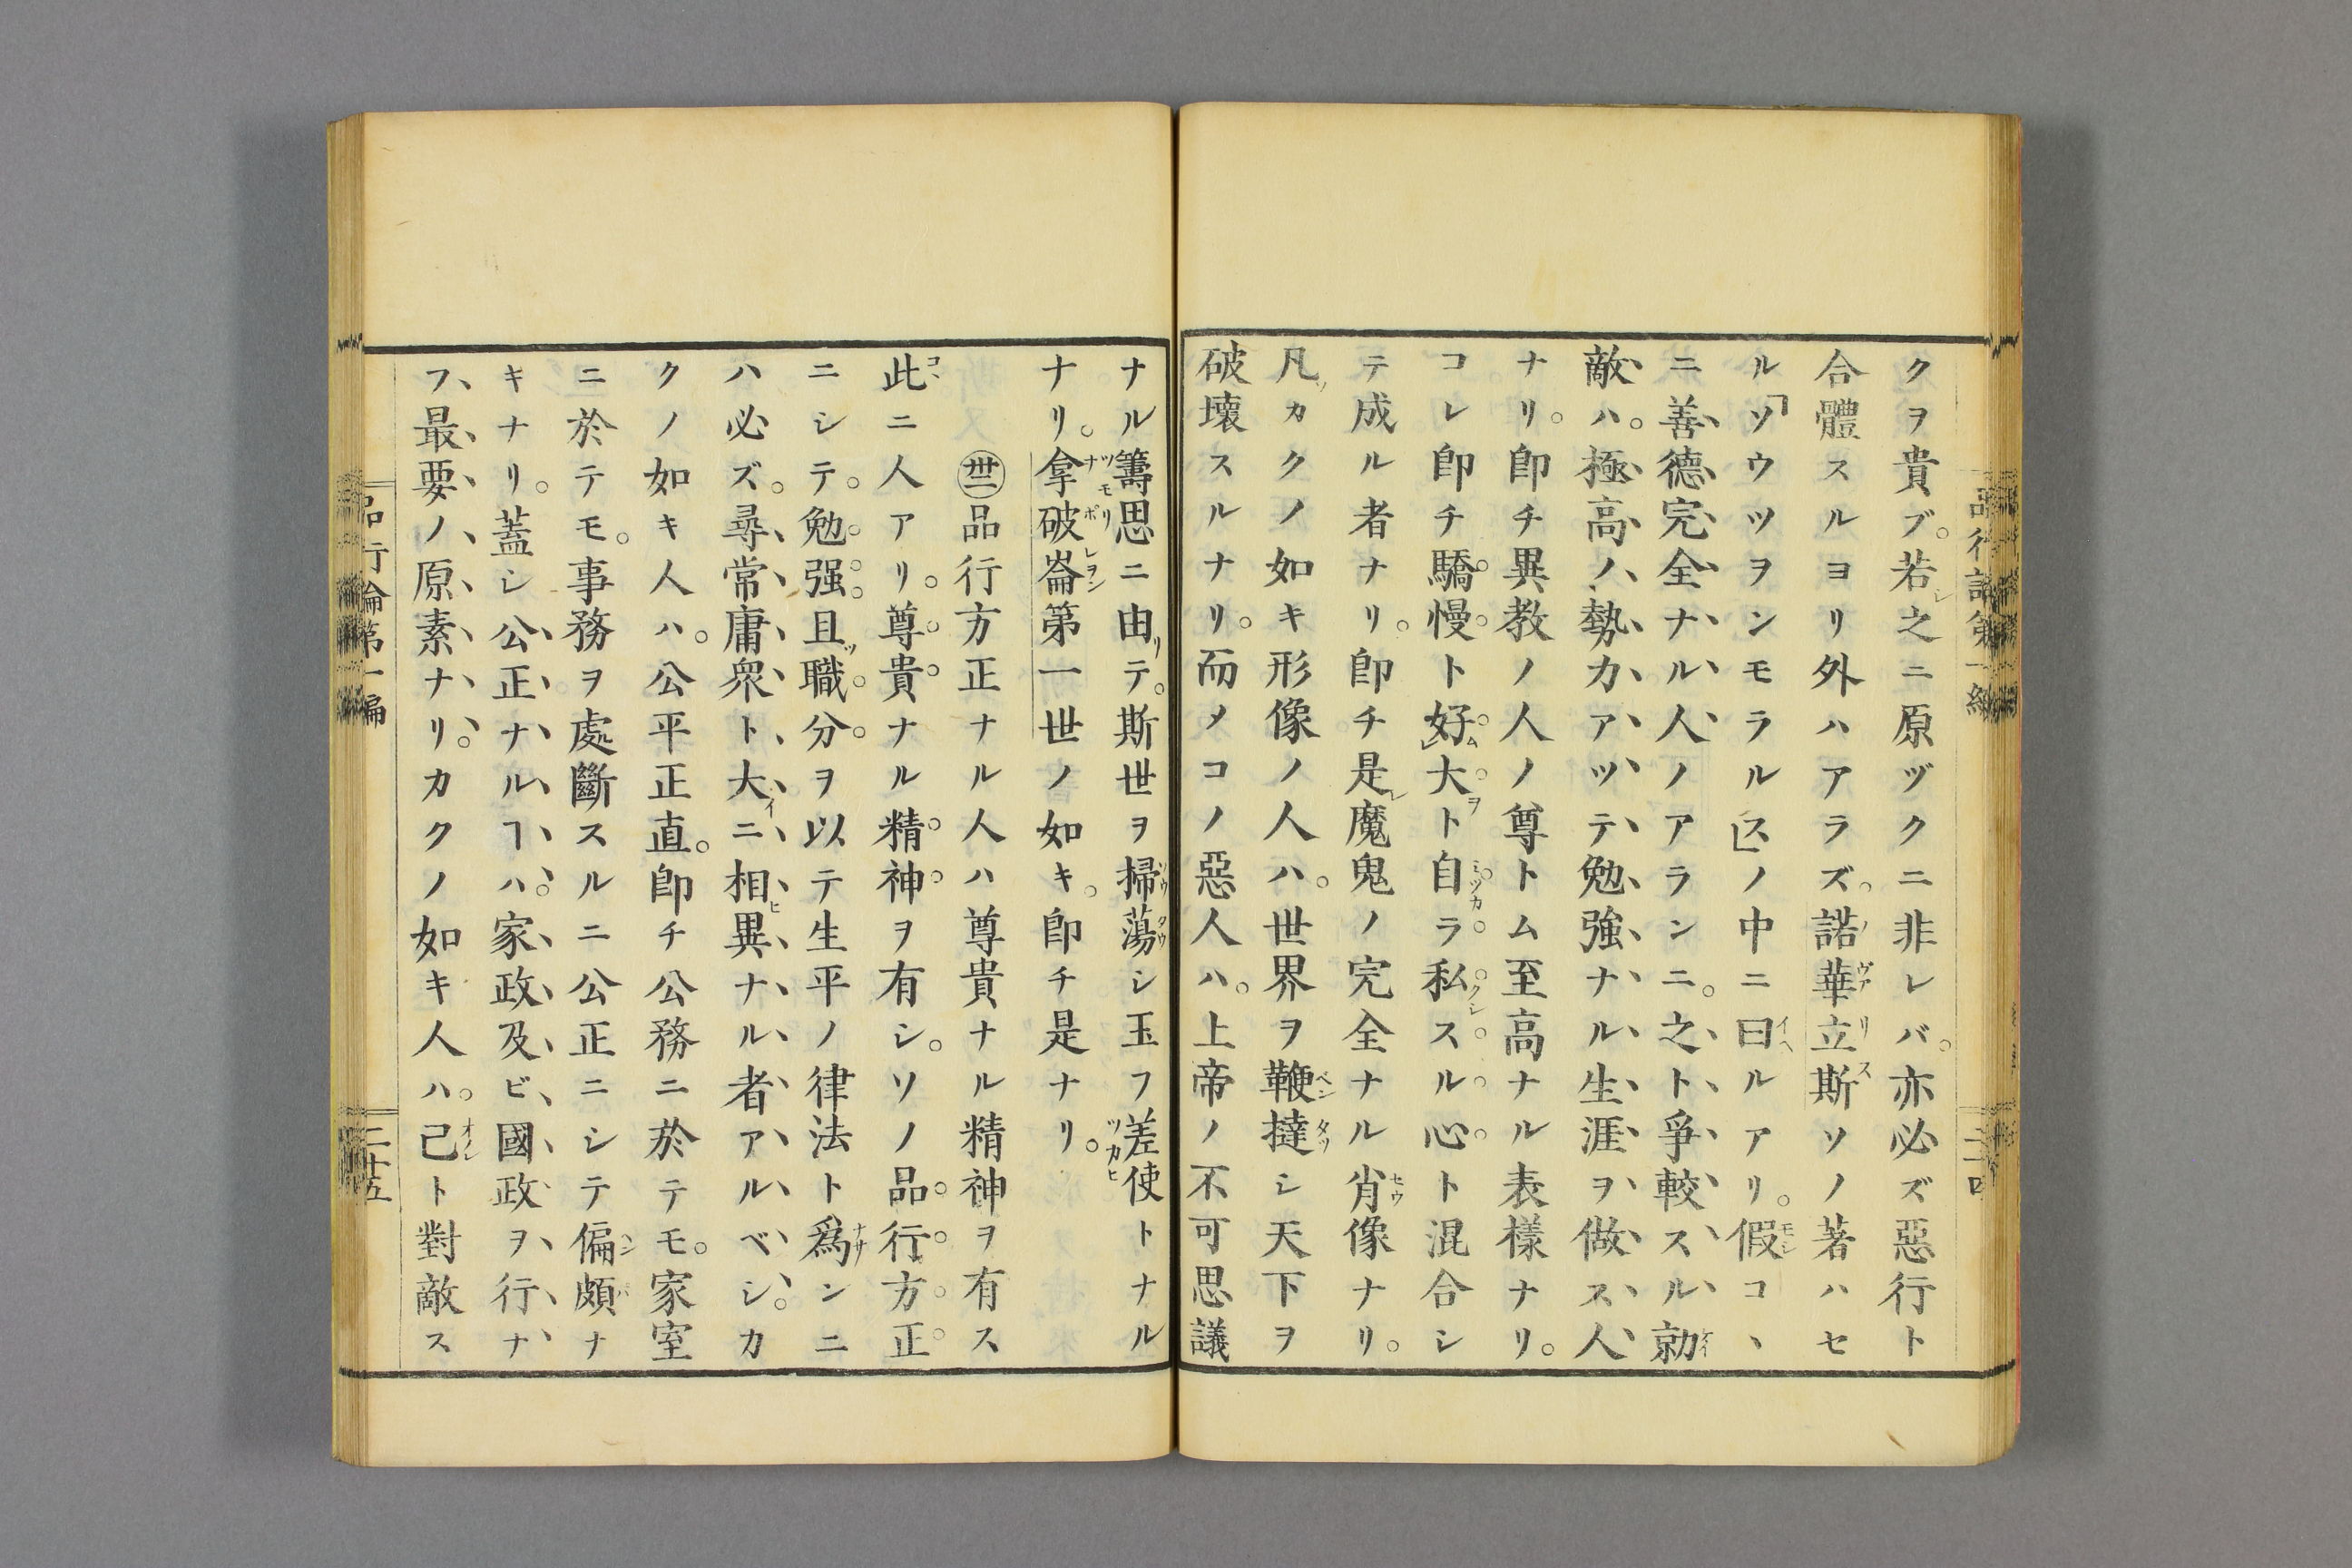 クヲ貴ブ。若シ之ニ原ヅクニ非レバ。亦必ズ惡行ト
合體スルヨリ外ハアラズ。諾華立斯ソノ著ハセ
ル「ソウツヲンモラルス」ノ中ニ曰ルアリ。假コヽ
ニ善德完全ナル人ノアランニ。之ト爭較スル勍
敵ハ。極高ノ勢力アツテ勉強ナル生涯ヲ做ス人
ナリ。卽チ異教ノ人ノ尊トム至高ナル表樣ナリ。
コレ卽チ驕慢ト好ム大ヲト自ラ私スル心ト混合シ
テ成ル者ナリ。卽チ是レ魔鬼ノ完全ナル肖像ナリ。
凡ソカクノ如キ形像ノ人ハ。世界ヲ鞭撻シ天下ヲ
破壊スルナリ。而メコノ惡人ハ。上帝ノ不可思議
ナル籌思ニ由リテ。斯世ヲ掃蕩シ玉フ差使トナル
ナリ。拿破崙第一世ノ如キ。卽チ是ナリ。
㊇品行方正ナル人ハ尊貴ナル精神ヲ有ス
此ニ人アリ。尊貴ナル精神ヲ有シ。ソノ品行方正
ニシテ。勉强且ツ職分ヲ以テ生平ノ律法ト爲ンニ
ハ必ズ。尋常庸衆ト大イニ相ヒ異ナル者アルベシ。カ
クノ如キ人ハ。公平正直。卽チ公務ニ於テモ。家室
ニ於テモ。事務ヲ處斷スルニ公正ニシテ偏頗ナ
キナリ。蓋シ公正ナルヿハ。家政及ビ國政ヲ行ナ
フ最要ノ原素ナリ。カクノ如キ人ハ。己ト對敵ス
品行論第一編
二十五